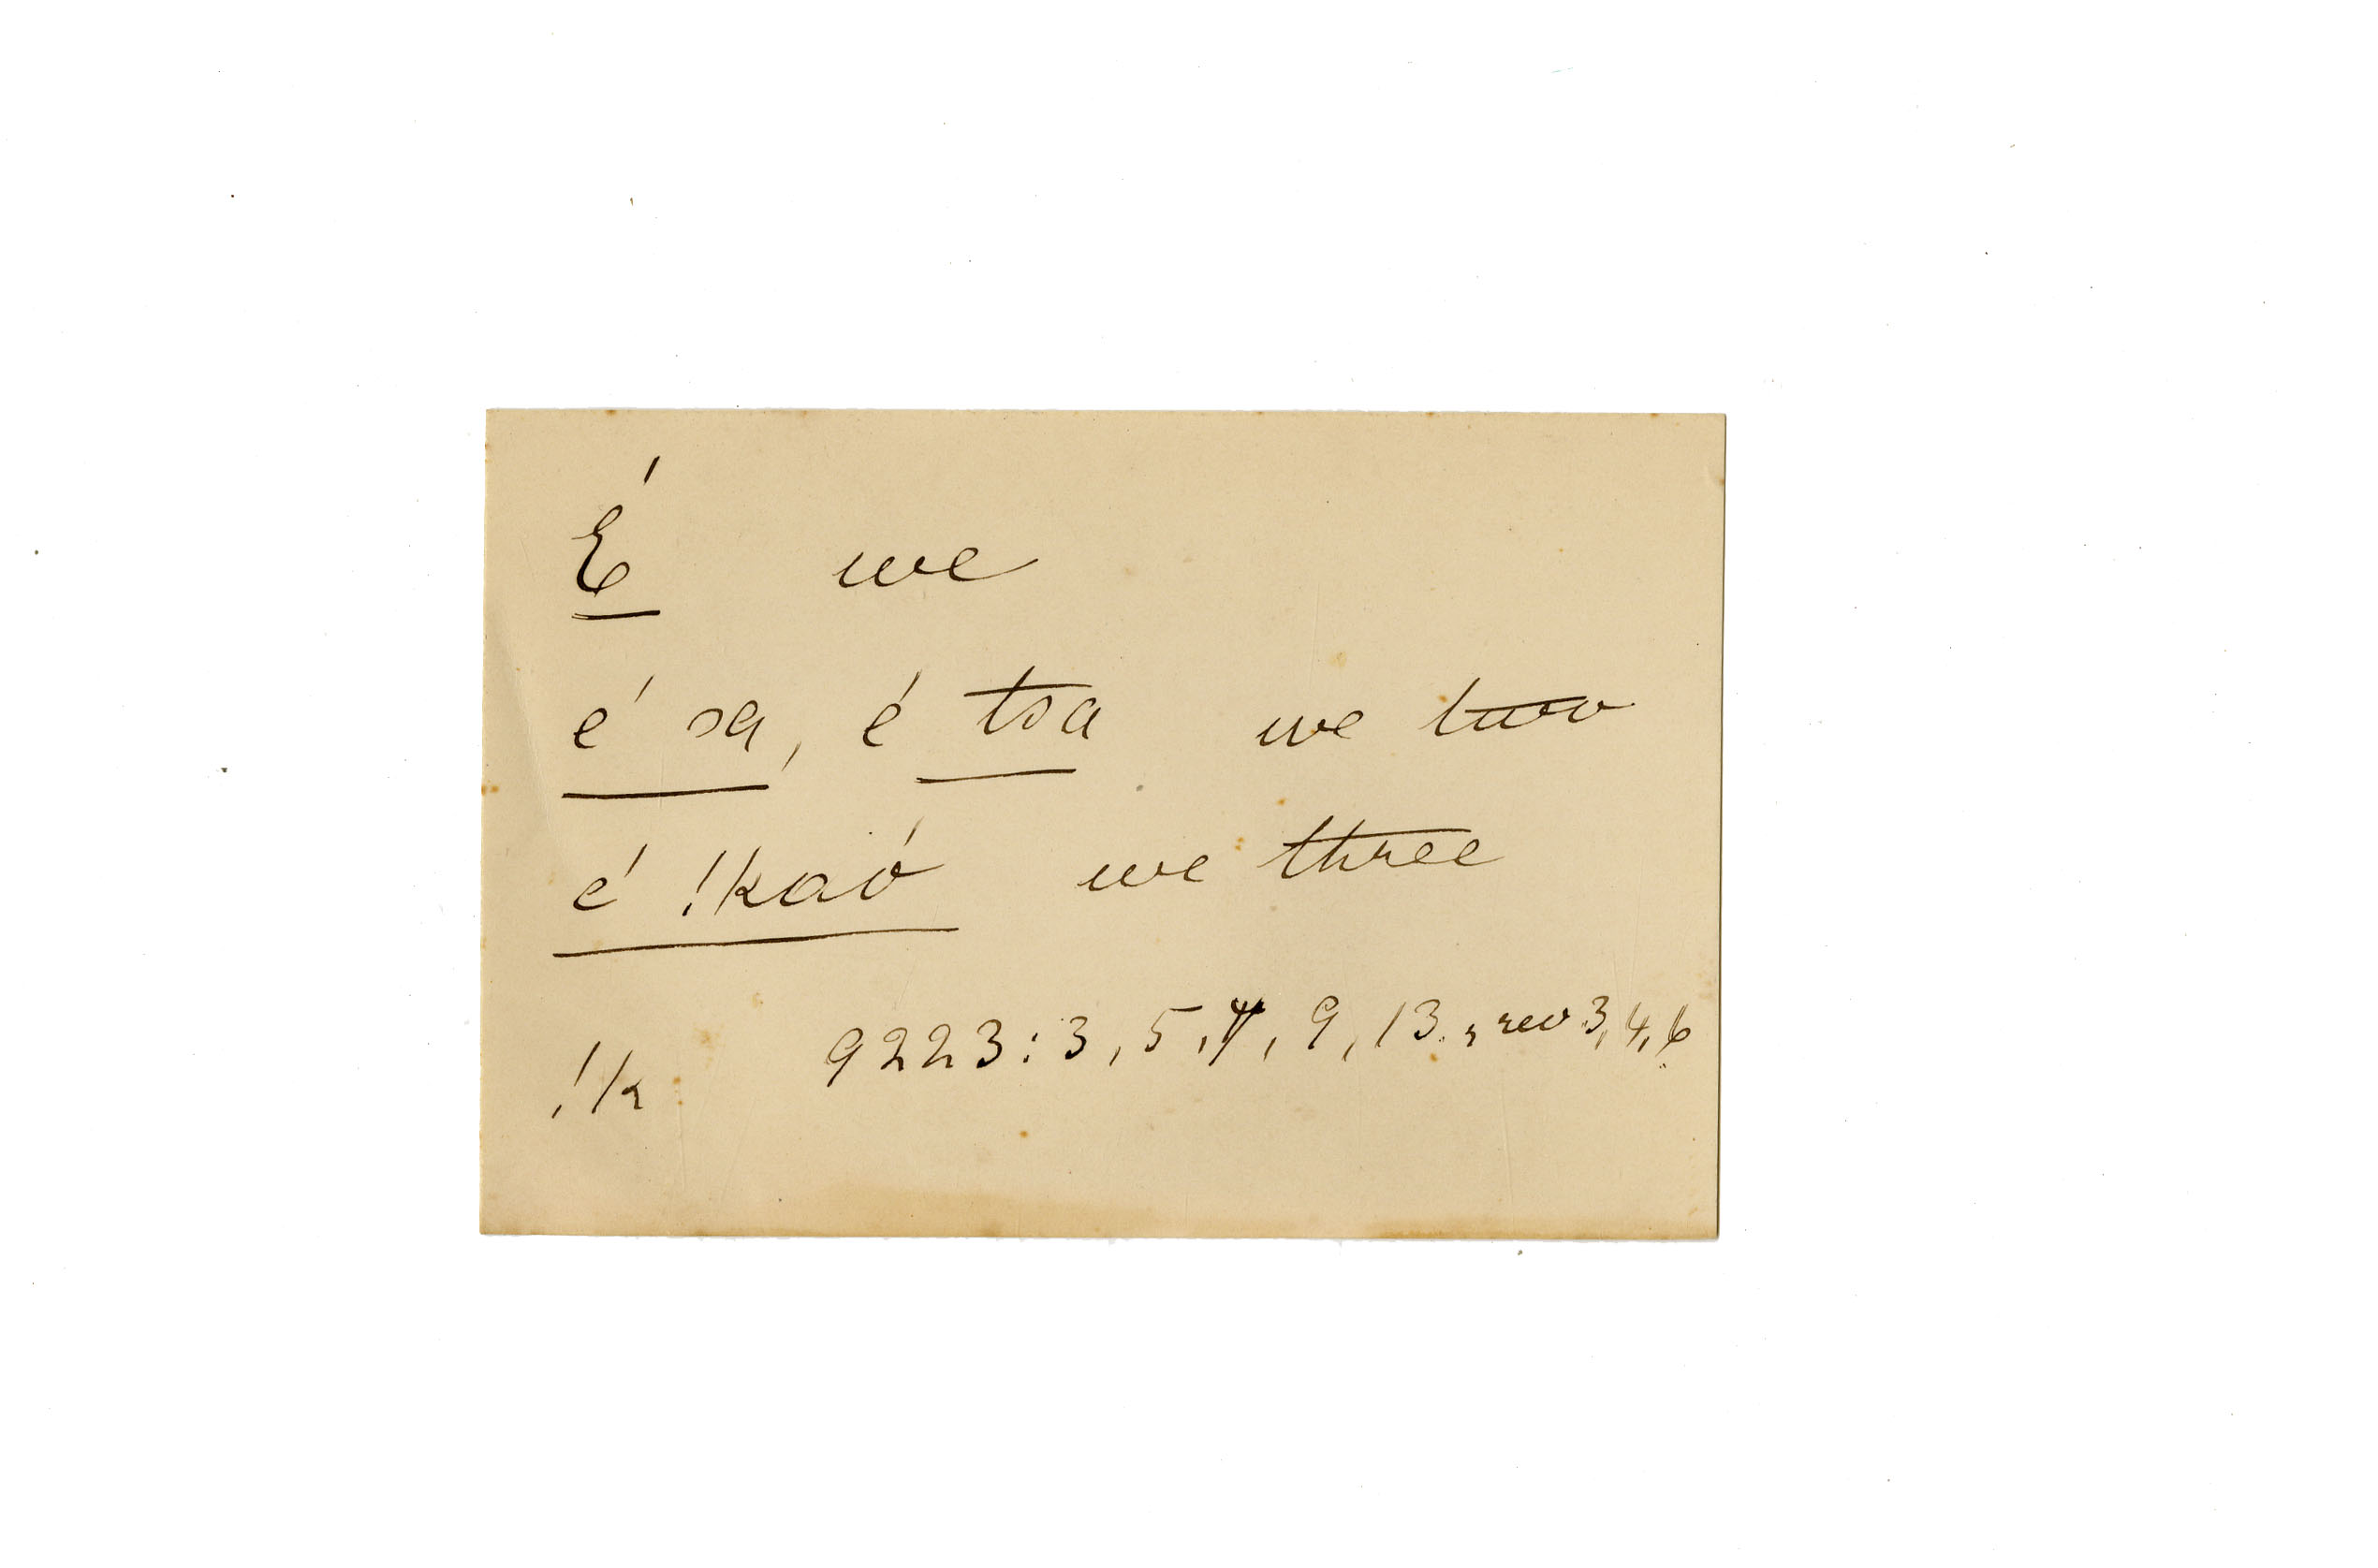 É we
é sa, é tsa we two
é !kaó we three
!k 9223:3, 5, 7, 9, 13., rev. 3, 4, 6